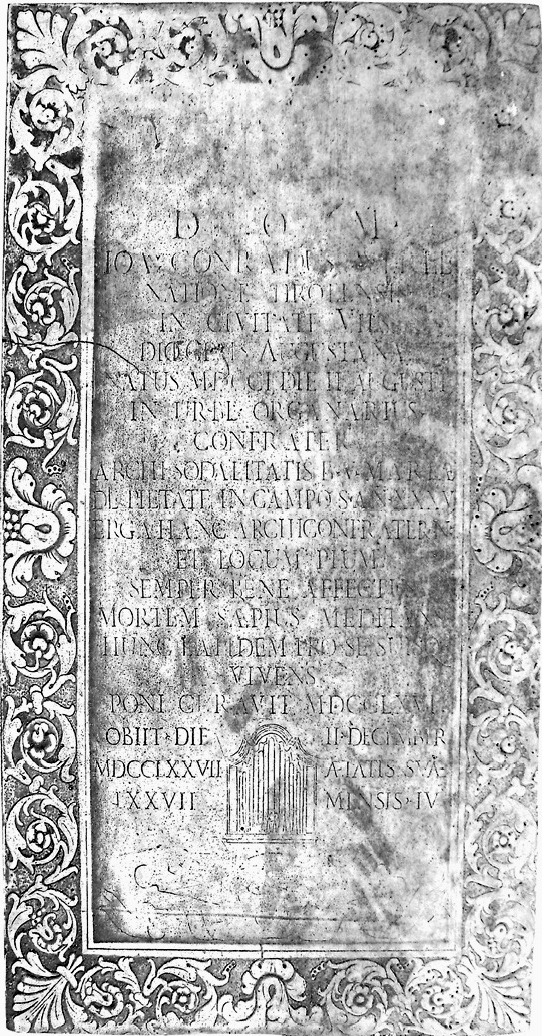 D O M
IOA CONRADUS
NATIONE TIROLENSIS
IN CIVITATE VILS
DIOCESIS AUGUSTANA
NATUS MDCCI DIE II AUGUSTI
IN URBE ORGANARIUS
CONFRATER
ARCHISODALITATIS B·V·MARIA
DE PIETATE IN CAMPO
ERGA HANC ARCHICONFRATERN
ET LOCUM PIUM
SEMPER BENE AFFECTUS
MORTEM SÆPIUS
HUNC LAPIDEM PRO SE
VIVENS
PONI CURAVIT
OBIIT·DIE II·DECEMBER
MDCCLXXVII ÆTATIS·SUÆ
LXXVII MENSIS·IV